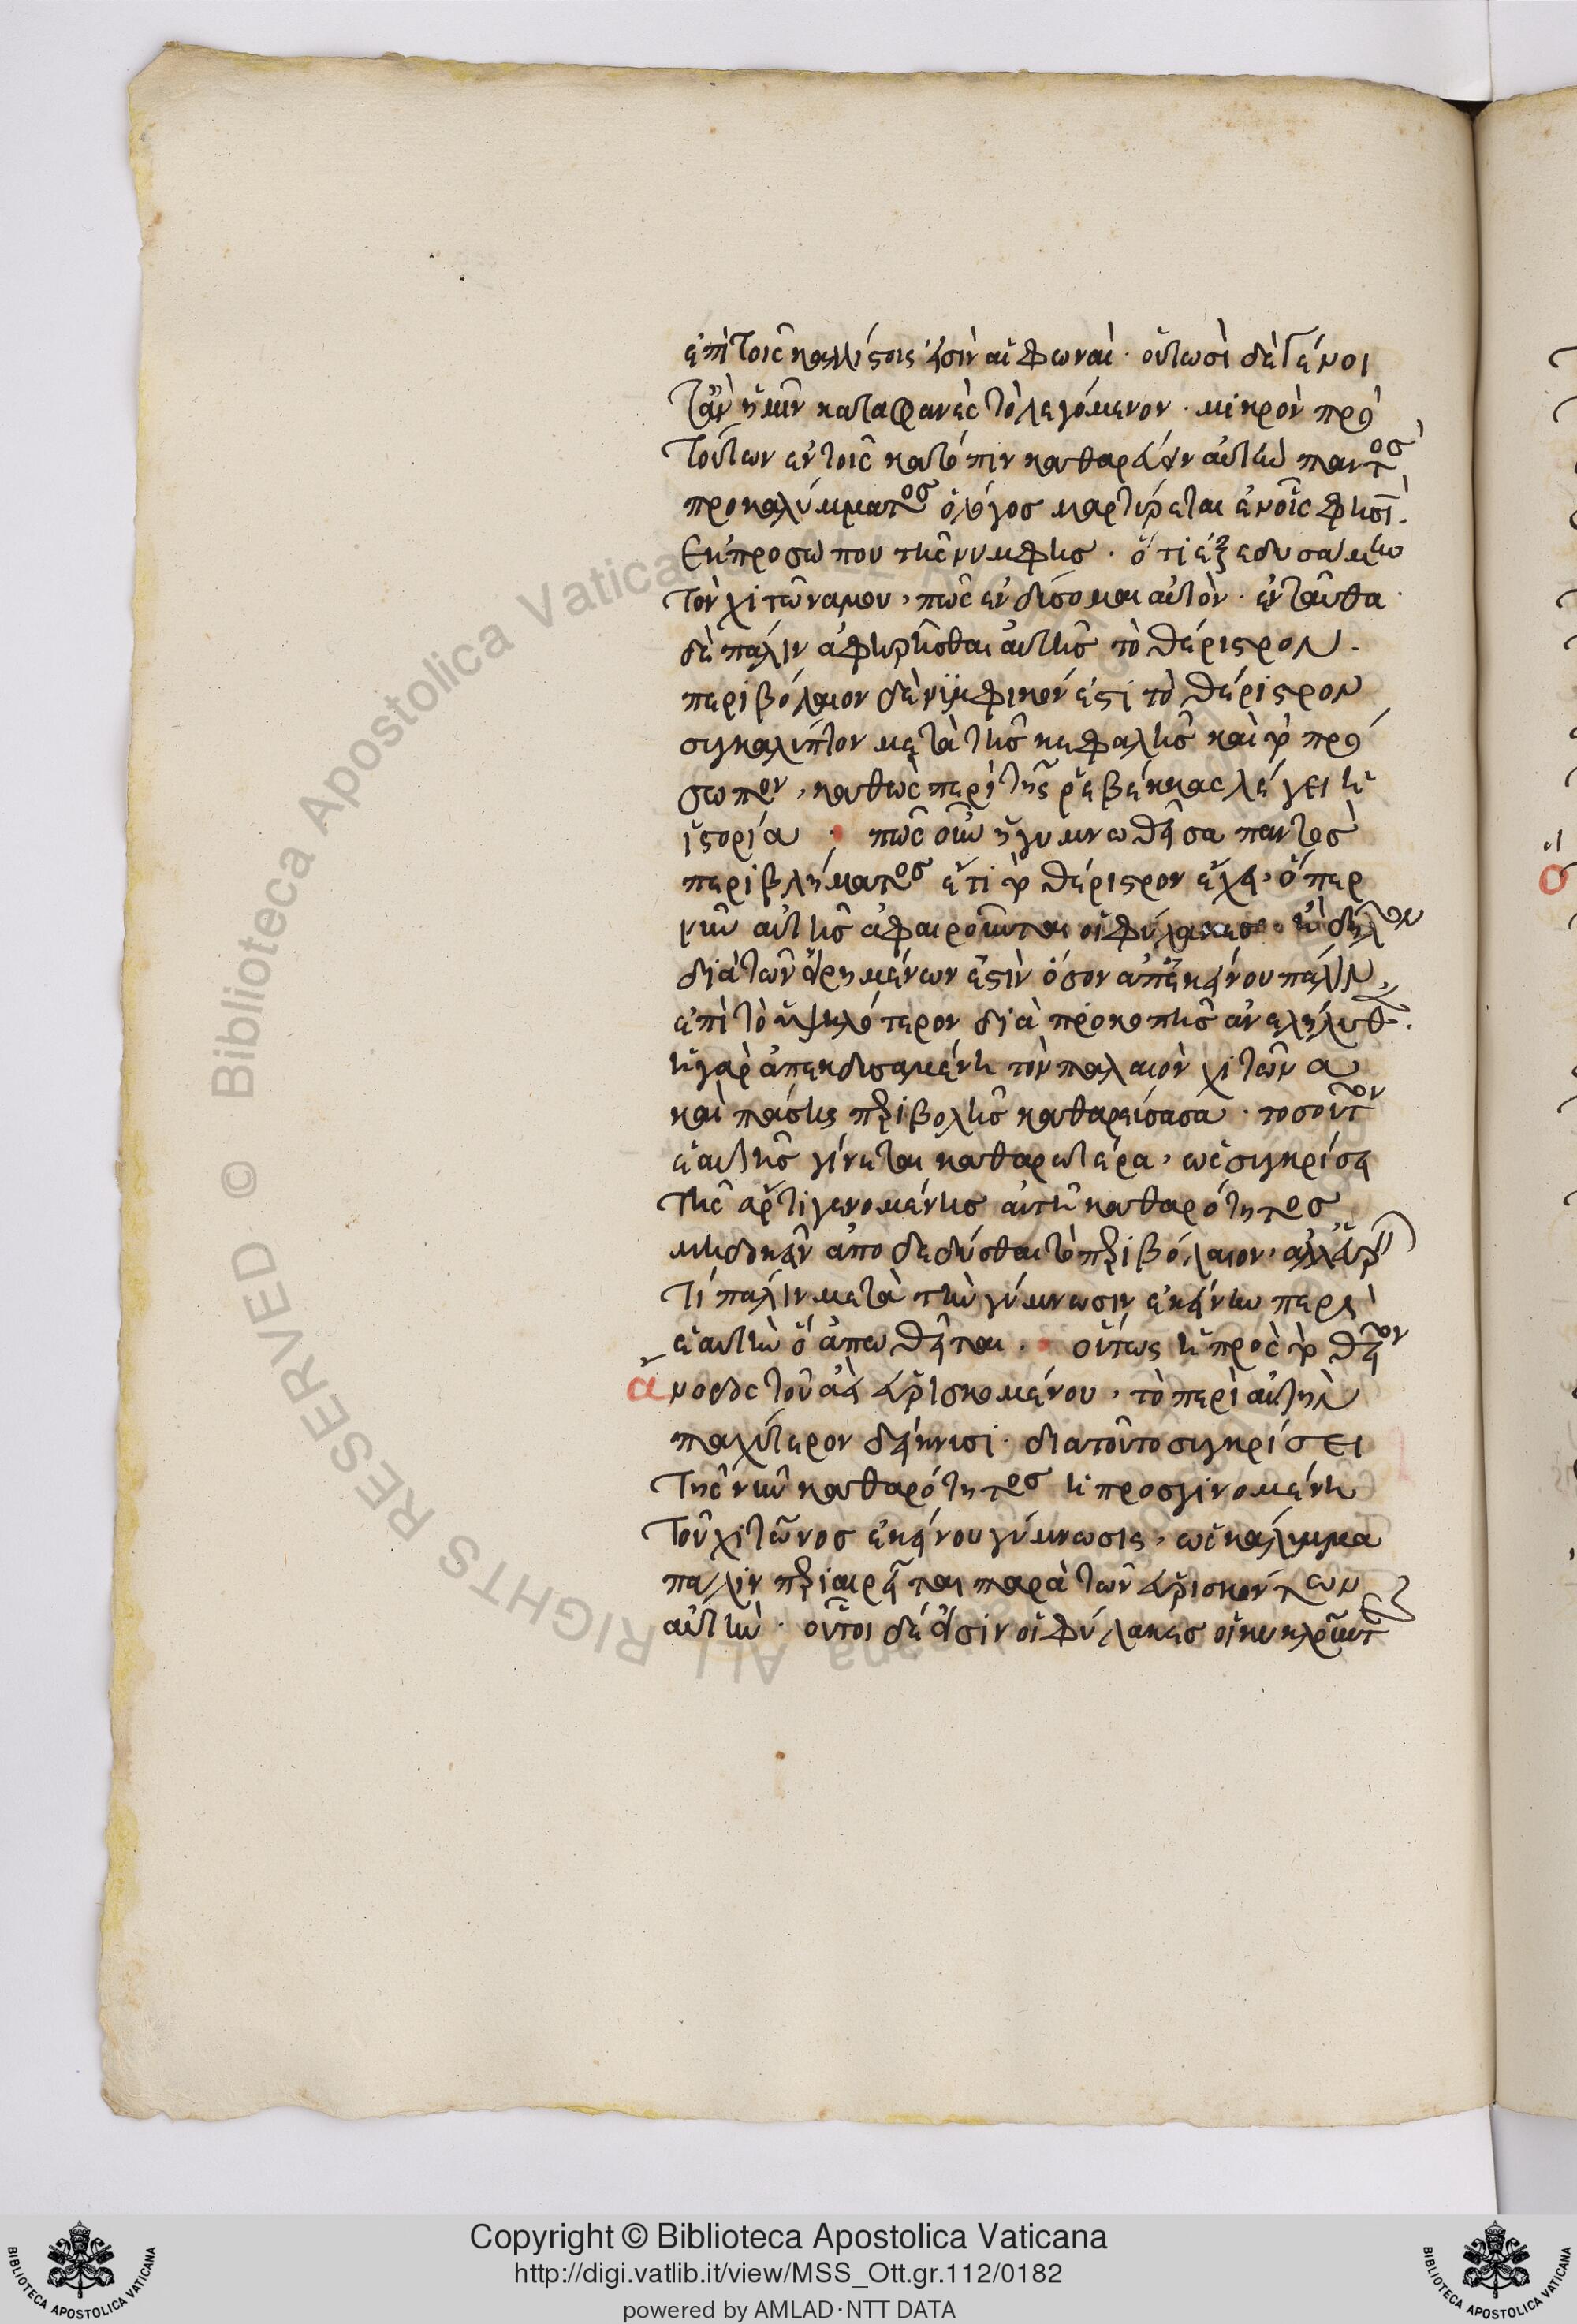 ἐπὶ τοῖς καλλίστοις εἰσὶν αἱ φωναί· οὑτωσὶ δὲ γένοι
τ' ἂν ἡμῖν καταφανὲς τὸ λεγόμενον· μικρὸν πρὸ
τούτων ἐν τοῖς κατόπιν καθαρεύειν αὐτὴν παντὸς
προκαλύμματος ὁ λόγος μαρτύρεται ἐν οἷς φησὶ·
Ἐκ προσώπου τῆς νύμφης· ὅτι ἐξεδυσάμην
τὸν χιτῶνά μου, πῶς ἐνδύσομαι αὐτόν· ἐνταῦθα
δὲ πάλιν ἀφηρῆσθαι αὐτῆς τὸ θέριστρον·
περιβόλαιον δὲ νυμφικόν ἐστι τὸ θέριστρον
συγκαλύπτον μετὰ τῆς κεφαλῆς καὶ τὸ πρό
σωπον, καθὼς περὶ τῆς ῥεβέκκας λέγει ἡ
ἱστορία · πῶς οὖν ἡ γυμνωθεῖσα παντὸς
περιβλήματος ἔτι τὸ θέριστρον ἔχει, ὅπερ
νῦν αὐτῆς ἀφαιροῦνται οἱ φύλακες· ἢ δῆλον
διὰ τῶν εἰρημένων ἐστὶν ὅσον ἀπ' ἐκείνου πάλιν
ἐπὶ τὸ ὑψηλότερον διὰ προκοπῆς ἀνελήλυθε·
ἡ γὰρ ἀπεκδυσαμένη τὸν παλαιὸν χιτῶνα
καὶ πάσης περιβολῆς καθαρεύσασα· τοσοῦτον
ἑαυτῆς γίνεται καθαρωτέρα, ὡς συγκρίσει
τῆς ἄρτι γενομένης αὐτῇ καθαρότητος
μὴ δοκεῖν ἀποδεδύσθαι τὸ περιβόλαιον, ἀλλ' εὑρ
τί πάλιν μετὰ τὴν γύμνωσιν ἐκείνην περὶ
ἑαυτὴν ὃ ἀπωθεῖται· οὕτως ἡ πρὸς τὸ θεῖον
ἄνοδος τοῦ ἀεὶ εὑρισκομένου, τὸ περὶ αὐτὴν
παχύτερον δείκνυσι· διὰ τοῦτο συγκρίσει
τῆς νῦν καθαρότητος ἡ προσγινομένη
τοῦ χιτῶνος ἐκείνου γύμνωσις, ὡς κάλυμμα
πάλιν περιαιρεῖται παρὰ τῶν εὑρισκόντων
αὐτὴν· οὗτοι δέ εἰσιν οἱ φύλακες οἱ κυκλοῦντες
Copyright © Biblioteca Apostolica Vaticana
http://digi.vatlib.it/view/MSS_Ott.gr.112/0182
powered by AMLAD·NTT DATA